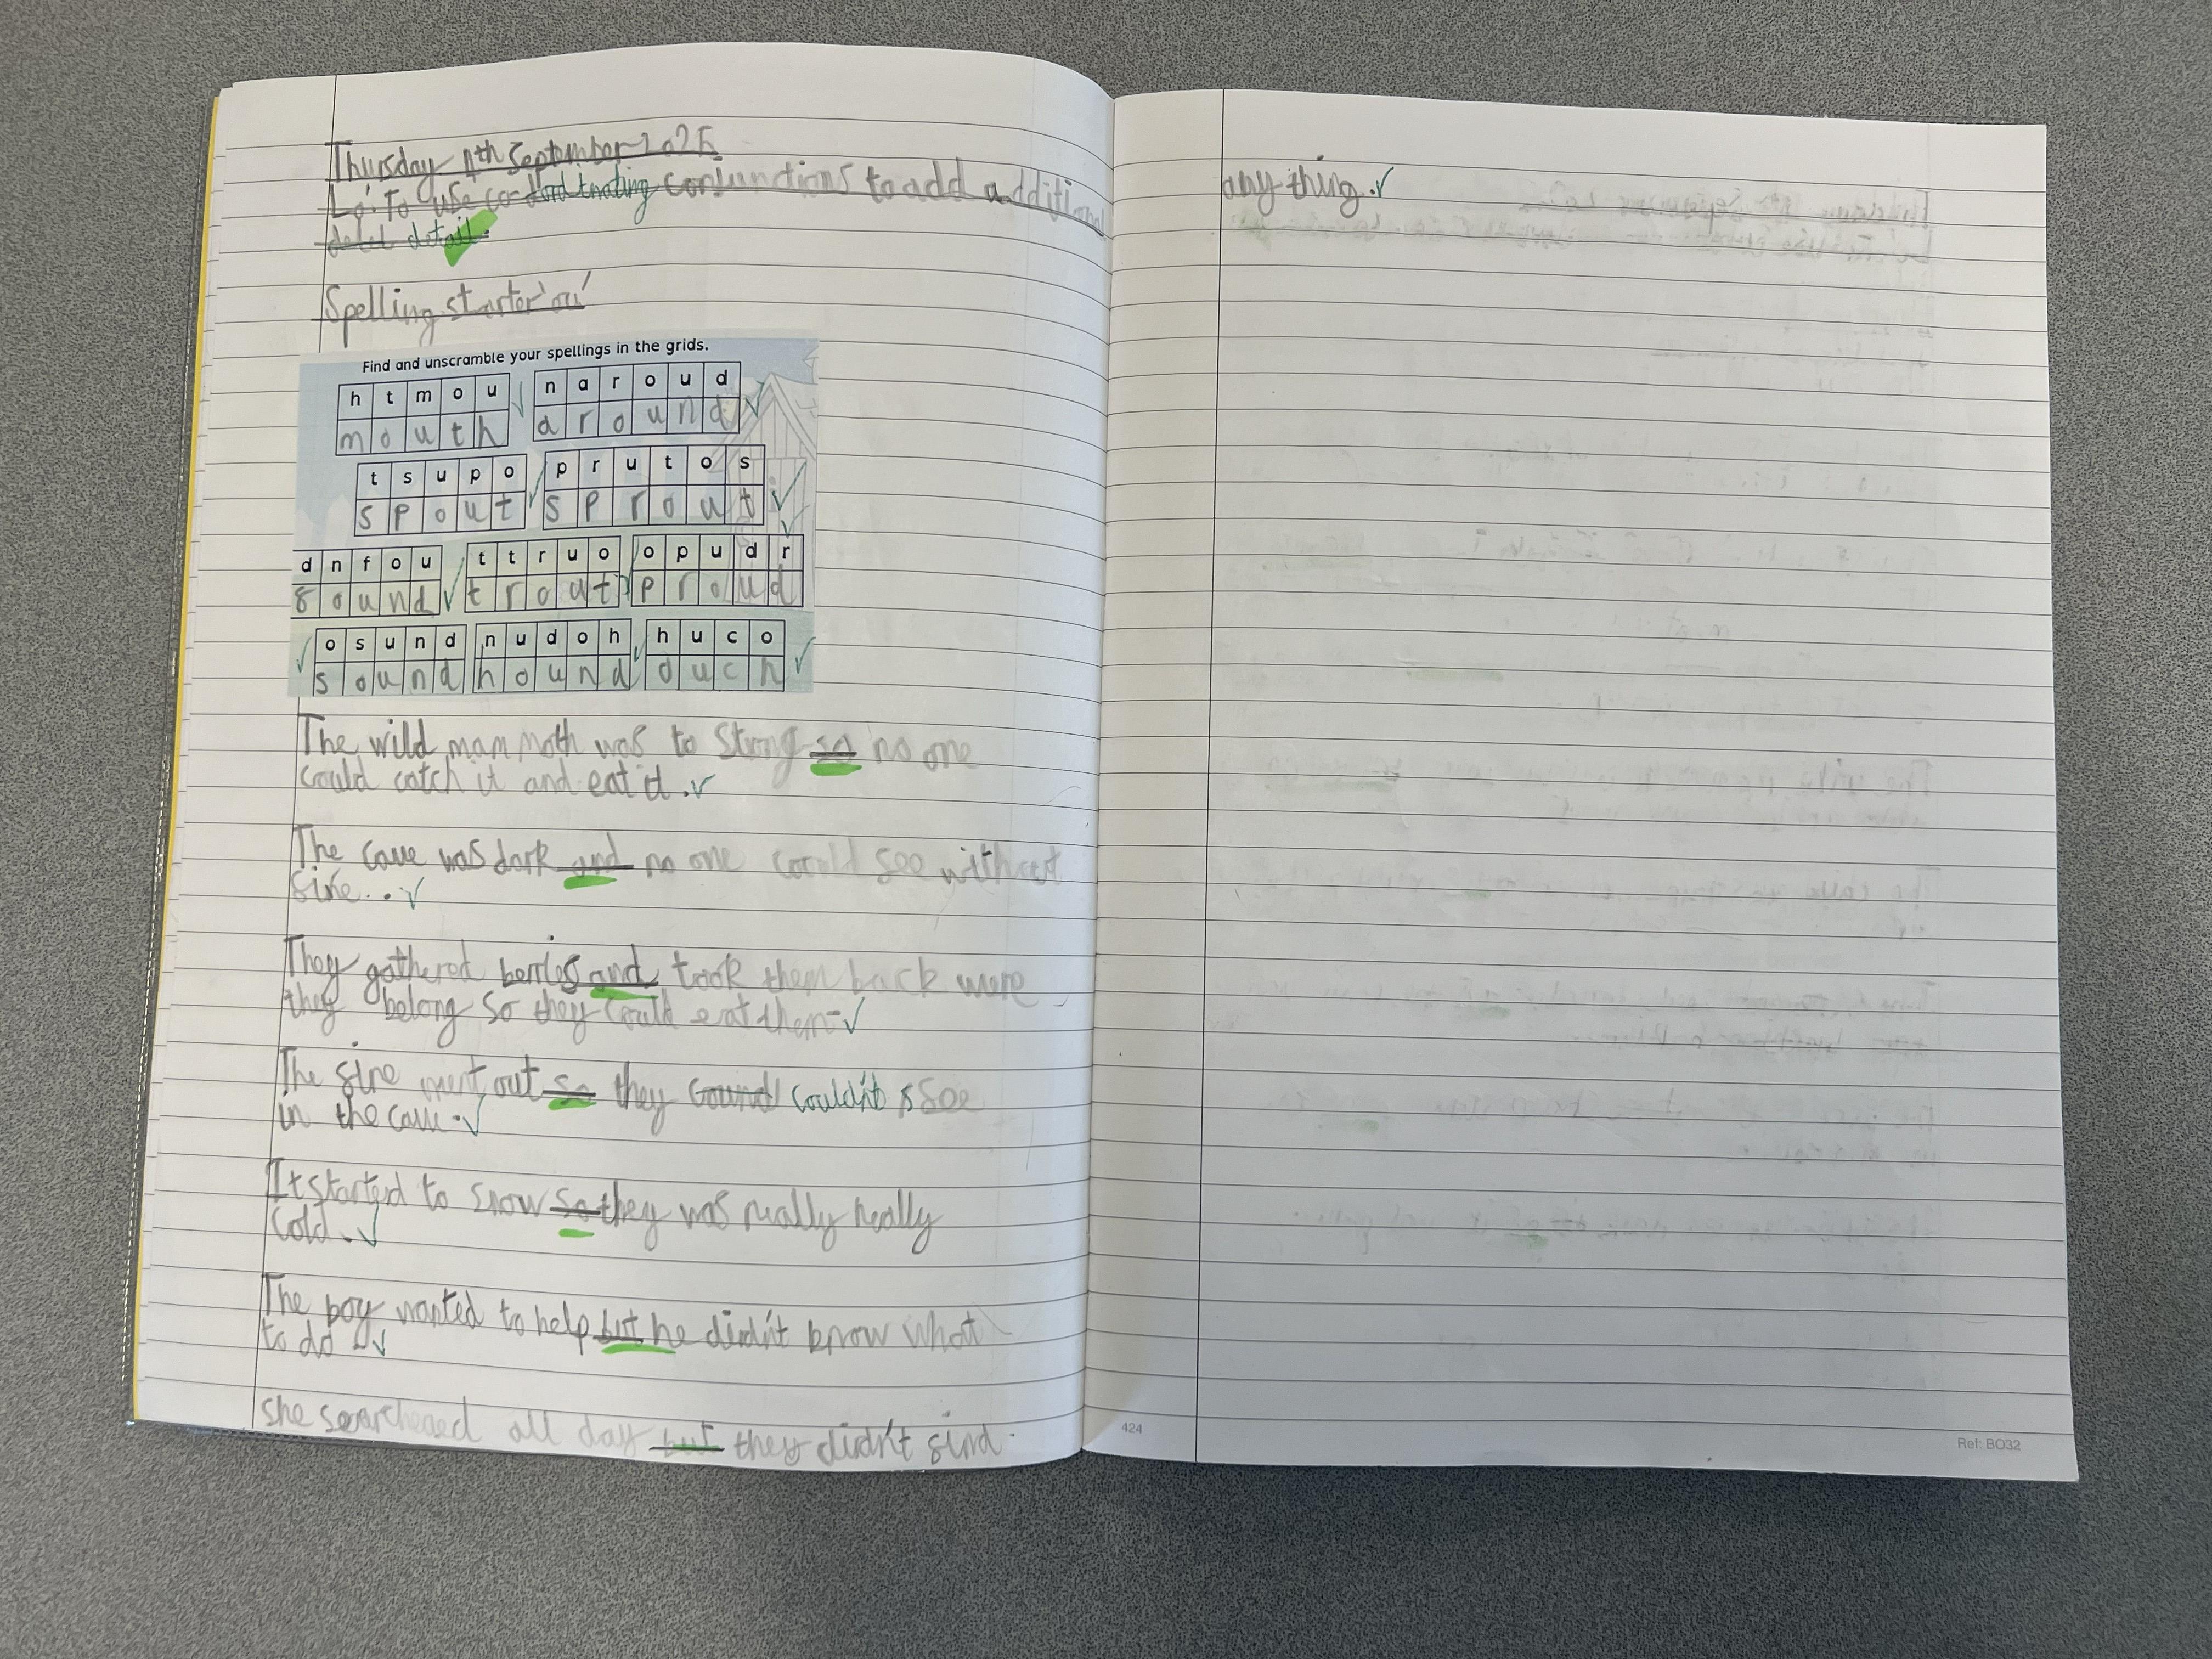 Thursday 4th September 2025
Lo: To use co-ordinating conjunctions to add additional
detel detail.
Spelling starter 'ou'
Find and unscramble your spellings in the grids.
h t m o u n a r o u d
m o u t h a r o u n d
t s u p o p r u t o s
s p o u t s p r o u t
d n f o u t t r u o o p u d r
f o u n d t r o u t p r o u d
o s u n d n u d o h h u c o
s o u n d h o u n d o u c h
The wild mammoth was to strong so no one
could catch it and eat it.
The cave was dark and no one could see without
fire..
They gathered berries and took them back were
they belong so they could eat them
The fire went out so they couldn't see
in the cave.
It started to snow so they was really really
cold.
The boy wanted to help but he didn't know what
to do
she searcheaed all day but they didn't find
any thing.
424
Ref: BO32